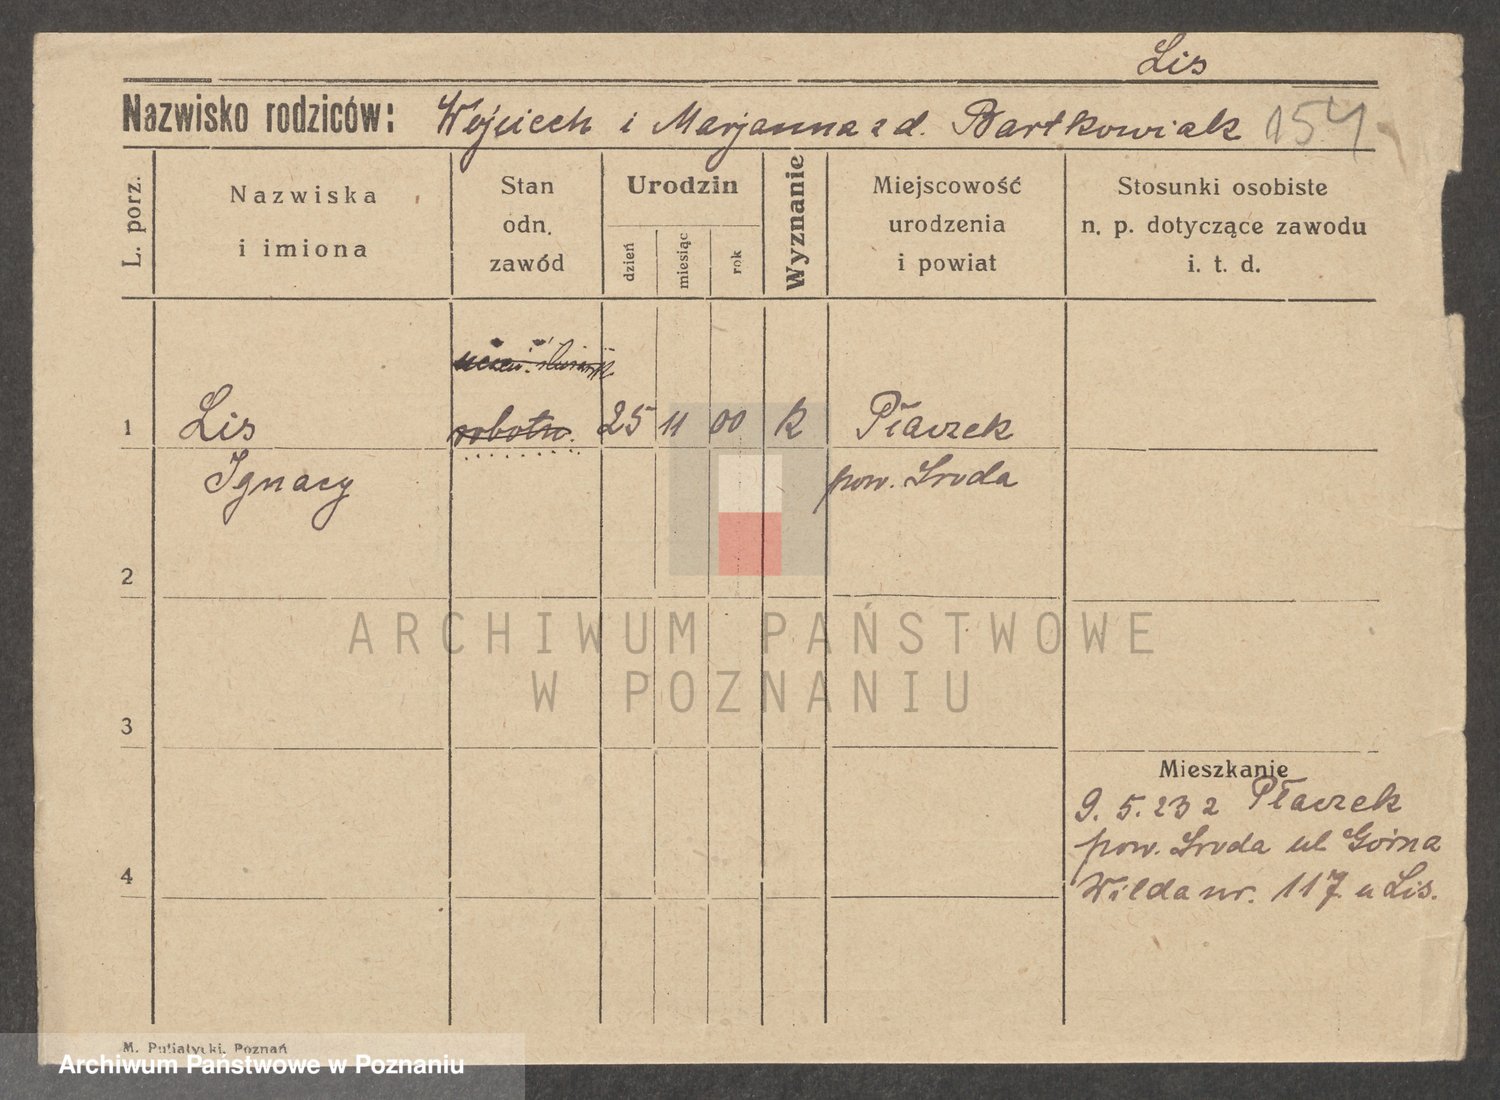 Lis
Nazwisko rodziców: Wojciech i Marjanna z d. Bartkowiak 154
L. porz.
Nazwiska
i imiona
Stan
odn.
zawód
Urodzin
dzień
miesiąc
rok
Wyznanie
Miejscowość
urodzenia
i powiat
Stosunki osobiste
n. p. dotyczące zawodu
i. t. d.
1 Lis robotn. 25 11 00 k Płaczek
Ignacy pow. Sroda
2
3
4
Mieszkanie
9. 5. 23 z Płaczek
pow. Sroda ul Górna
Wilda nr. 117 u Lis.
ARCHIWUM PAŃSTWOWE
W POZNANIU
M. Putiatycki, Poznań
Archiwum Państwowe w Poznaniu